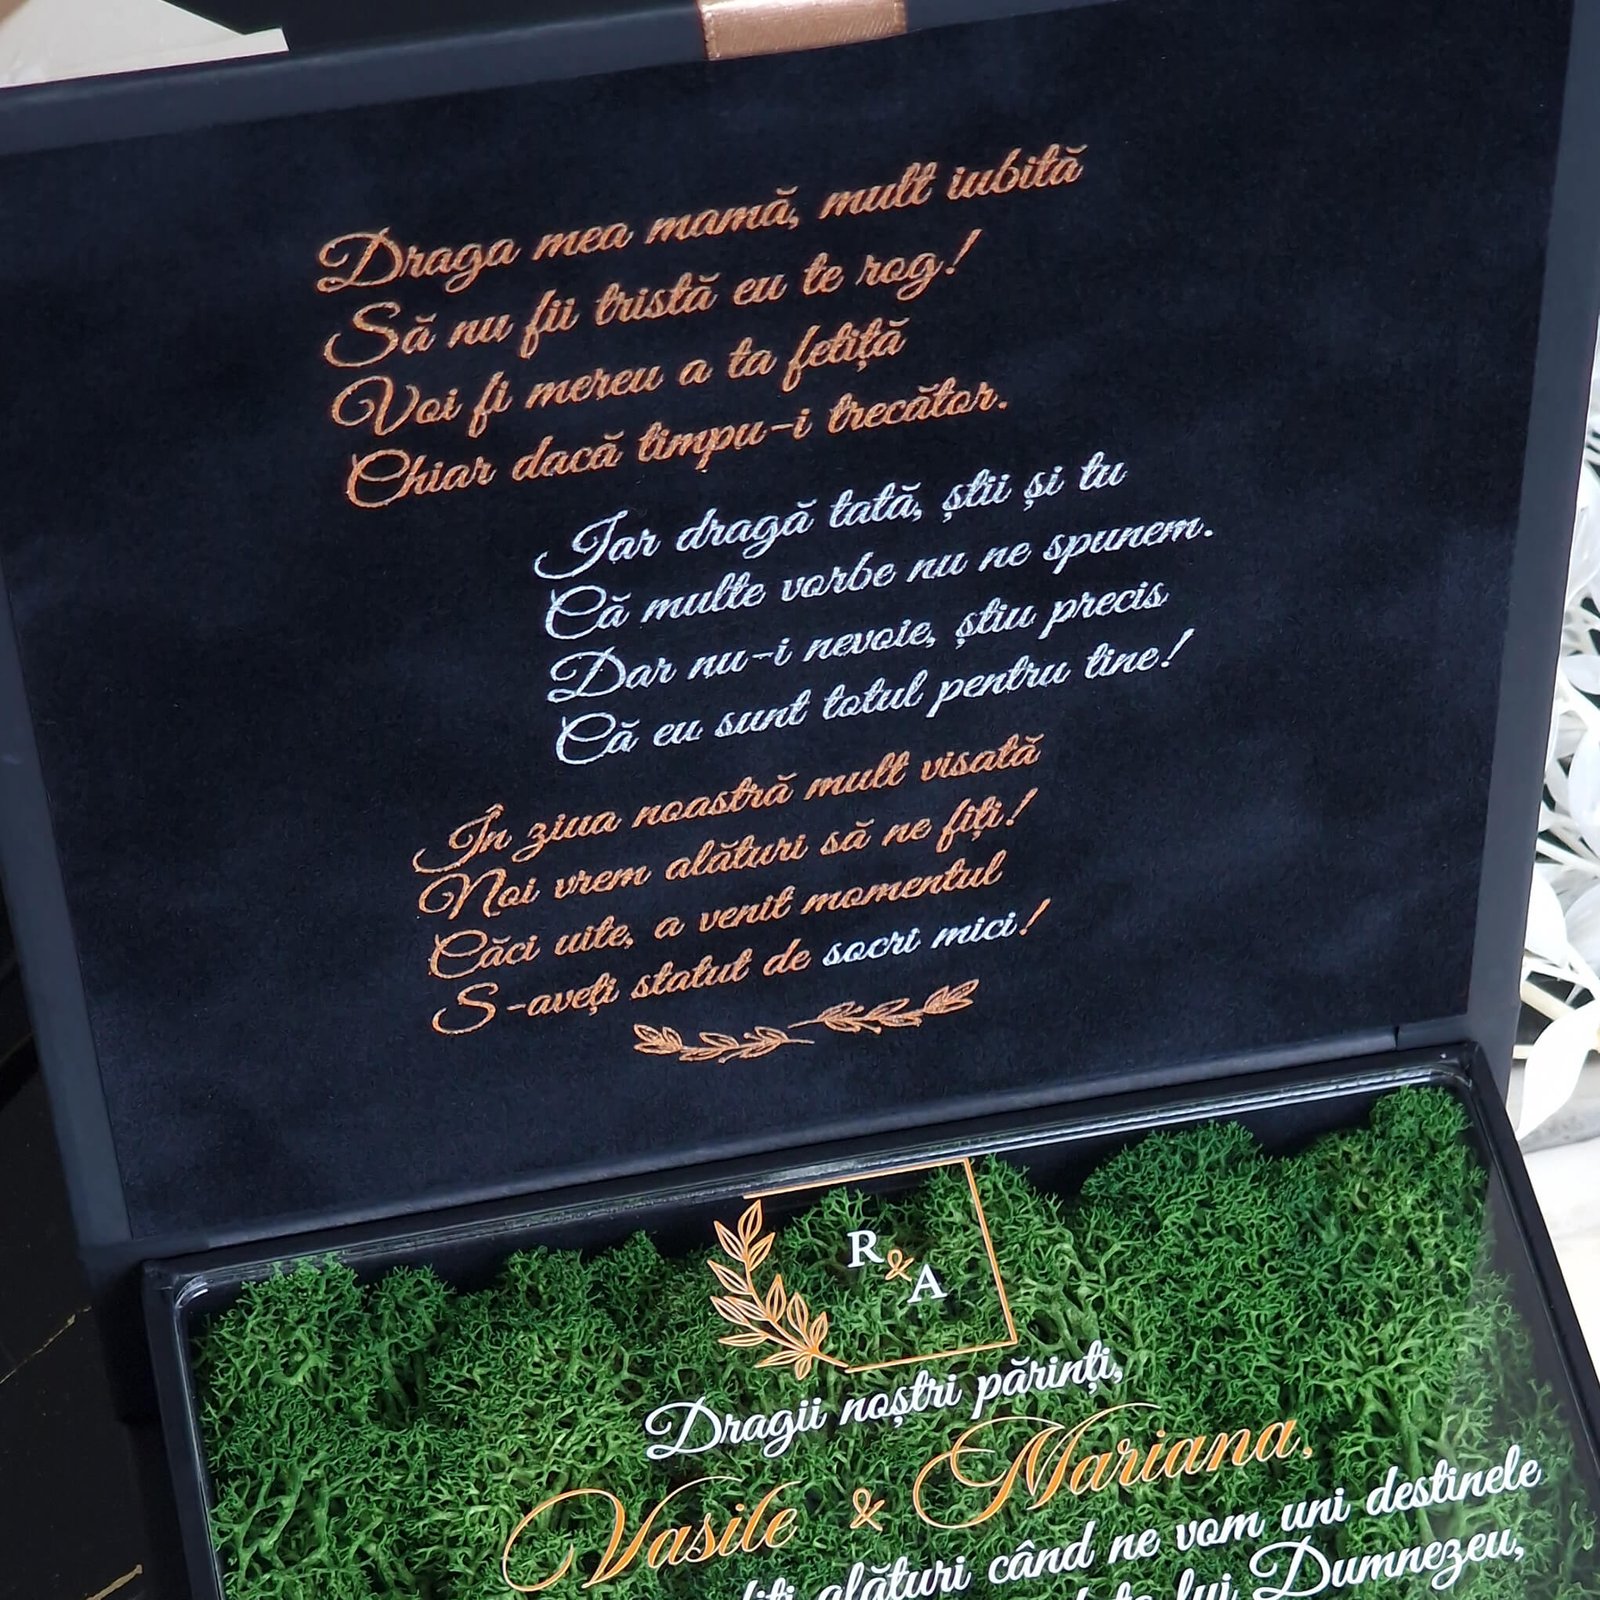 Draga mea mamă, mult iubită
Să nu fii tristă eu te rog!
Voi fi mereu a ta fetiță
Chiar dacă timpu-i trecător.
Iar dragă tată, știi și tu
Că multe vorbe nu ne spunem.
Dar nu-i nevoie, știu precis
Că eu sunt totul pentru tine!
În ziua noastră mult visată
Noi vrem alături să ne fiți!
Căci uite, a venit momentul
S-aveți statut de socri mici!
R
&
A
Dragii noștri părinți,
Vasile & Mariana,
alături când ne vom uni destinele
lui Dumnezeu,